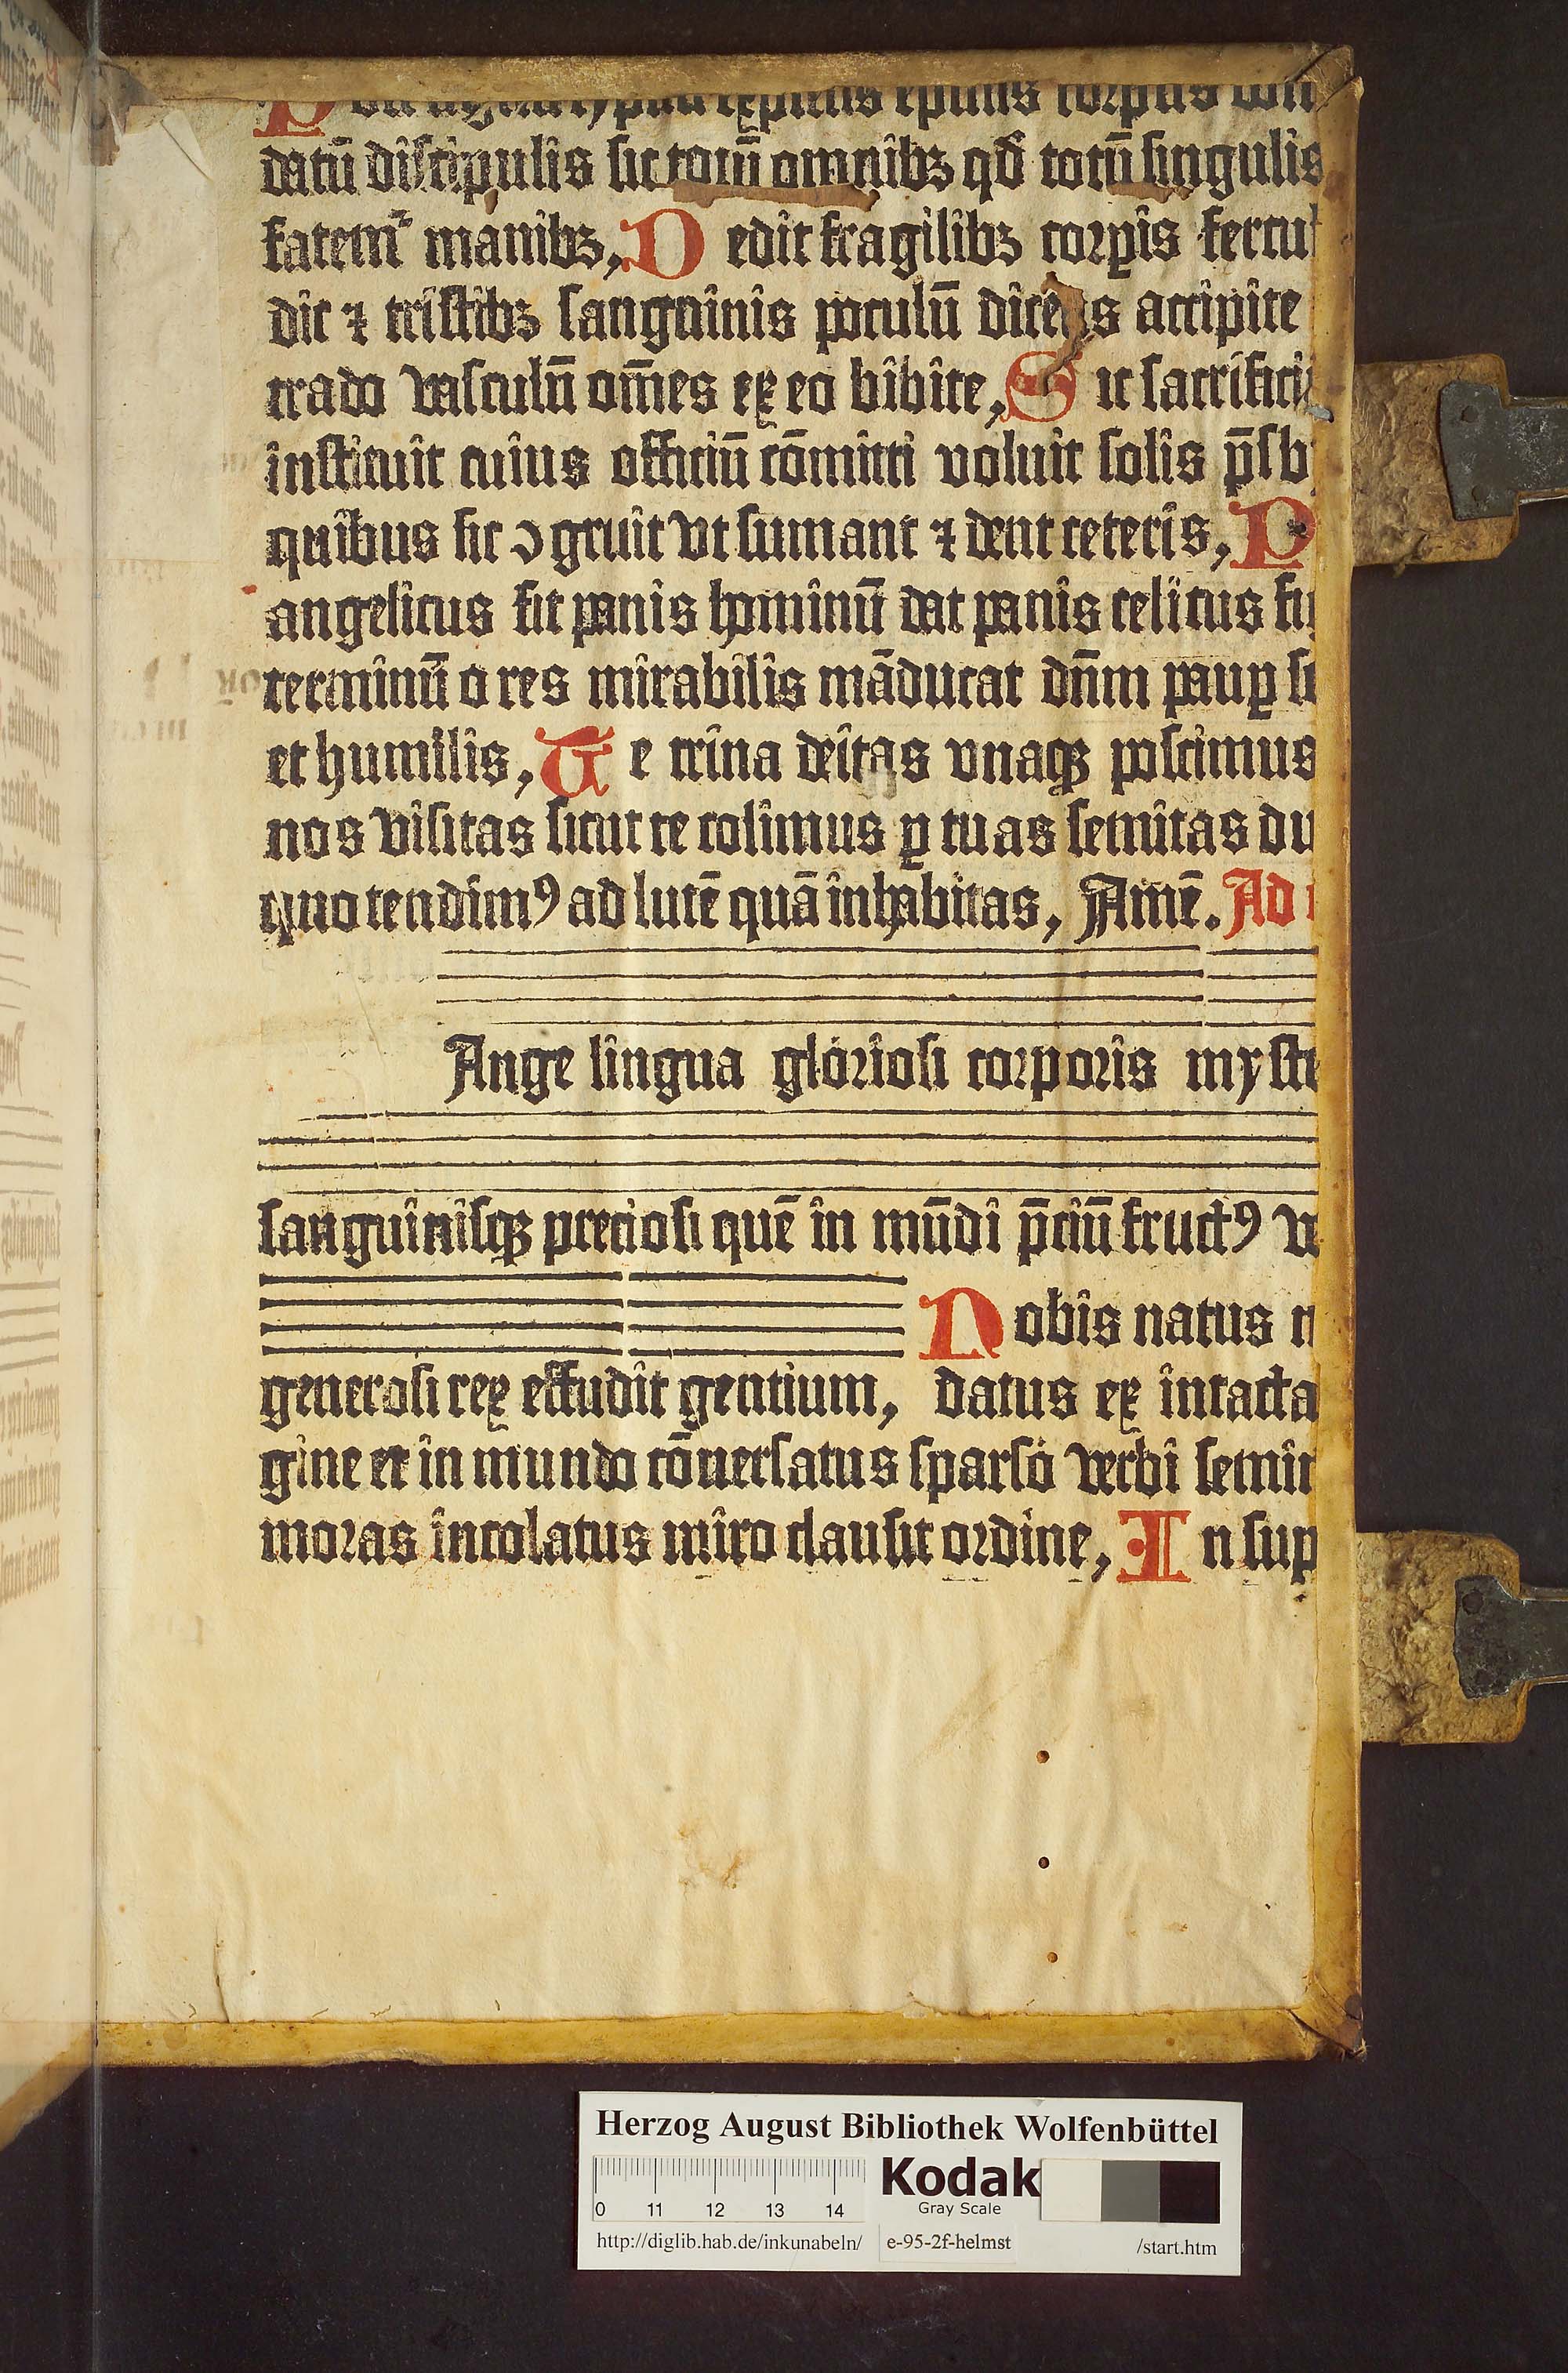 Post agnum typicu expletis epulis corpus domi
datū discipulis sic totū omnibꝫ qđ totū singulis
fatemʳ manibꝫ, Dedit fragilibꝫ corꝑis fercul
dit ⁊ tristibꝫ sanguinis poculū dicēs accipite
trado vasculū om̄es ex eo bibite, Sic sacrificiū
instituit cuius officiū cōmitti voluit solis p̄sb
quibus sic ↄgruit vt sumant ⁊ dent ceteris, P
angelicus fit panis hominū dat panis celicus fig
terminū o res mirabilis māducat dn̄m pauꝑ s
et humilis, Te trina deitas vnaqꝫ poscimus
nos visitas sicut te colimus ꝑ tuas semitas du
quo tendimꝰ ad lucē quā inhabitas, Amē. Ad
Ange lingua gloriosi corporis myste
sanguinisqꝫ preciosi quē in mūdi p̄ciū fructꝰ ve
Nobis natus n
generosi rex effudit gentium, datus ex intacta
gine et in mundo cōuersatus sparso verbi semin
moras incolatus miro clausit ordine, In sup
Herzog August Bibliothek Wolfenbüttel
Kodak
Gray Scale
0 11 12 13 14
http://diglib.hab.de/inkunabeln/ e-95-2f-helmst /start.htm